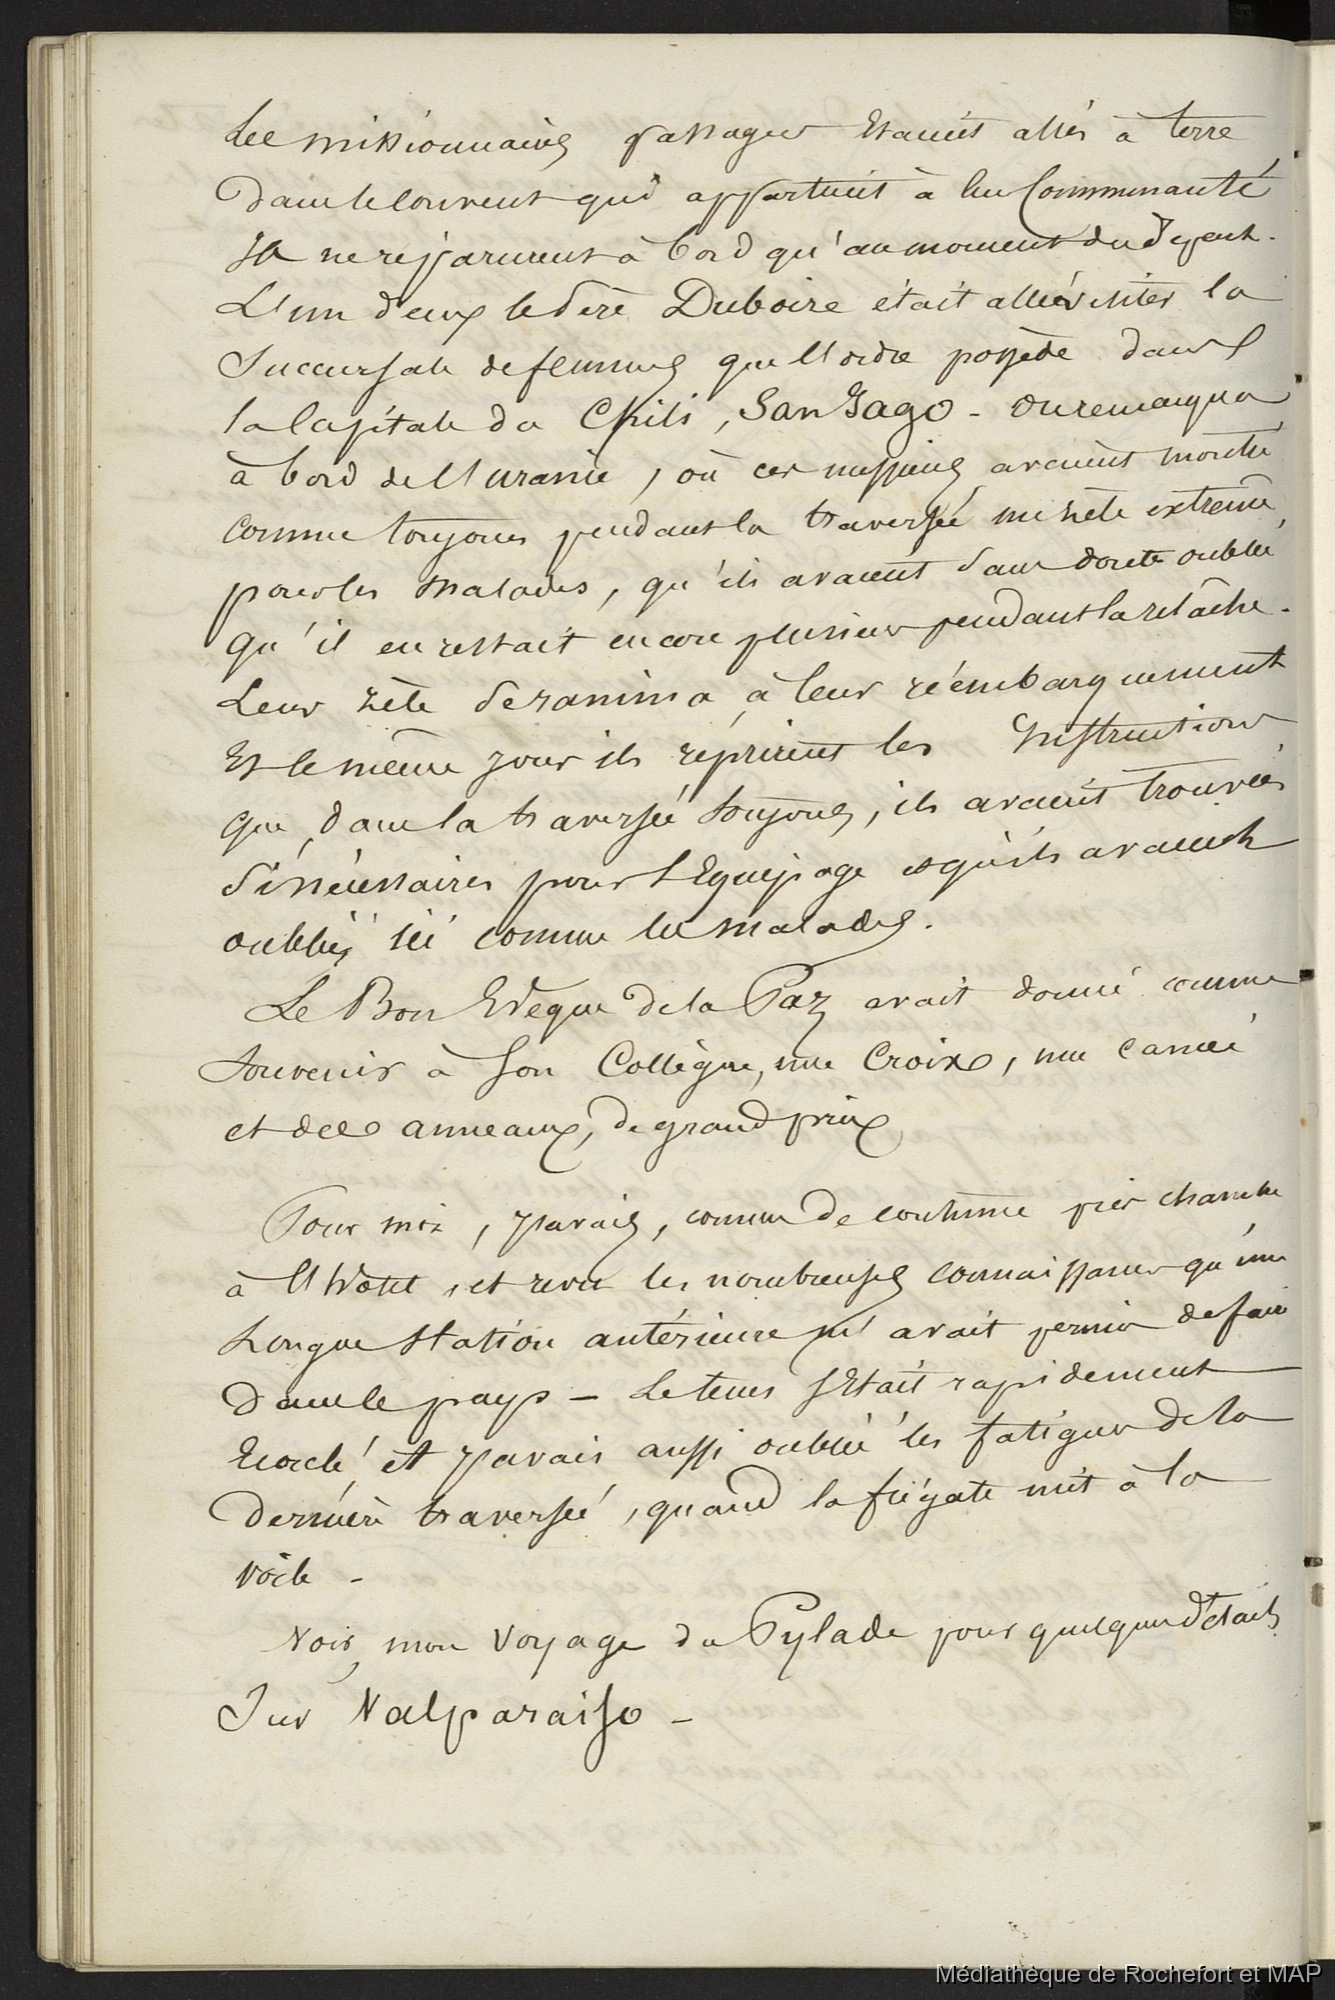 Les missionnaires passagers Etaient allés à terre
dans le couvent qui appartient à leur Communauté
Ils ne reparurent à bord qu'au moment du départ.
L'un d'eux le père Duboire était allé visiter la
Succursale de femmes que l'ordre possède dans
la Capitale du Chili, San Yago - On remarqua
à bord de l'Uranie, où ces messieurs avaient montré
comme toujours pendant la traversée un zèle extrême,
pour les malades, qu'ils avaient sans doute oublié
qu'il en restait encore plusieurs pendant la relâche.
Leur zèle se ranima à leur réembarquement
Et le même jour ils reprirent les Instructions
que, dans la traversée toujours, ils avaient trouvées
si nécessaires pour l'Equipage et qu'ils avaient
oubliés ici comme les malades.
Le Bon Evêque de la Paz avait donné comme
souvenir à son Collègue, une Croix, un camée
et des anneaux, de grand prix
Pour moi, j'avais, comme de coutume pris chambre
à l'hôtel, et revu les nombreuses connaissances qu'une
Longue station antérieure m'avait permis de faire
dans le pays - Le tems s'Etait rapidement
Ecoulé, et j'avais aussi oublié les fatigues de la
dernière traversée, quand la frégate mit à la
voile -
Voir, mon voyage du Pylade pour quelques détails
Sur Valparaiso -
Médiathèque de Rochefort et MAP